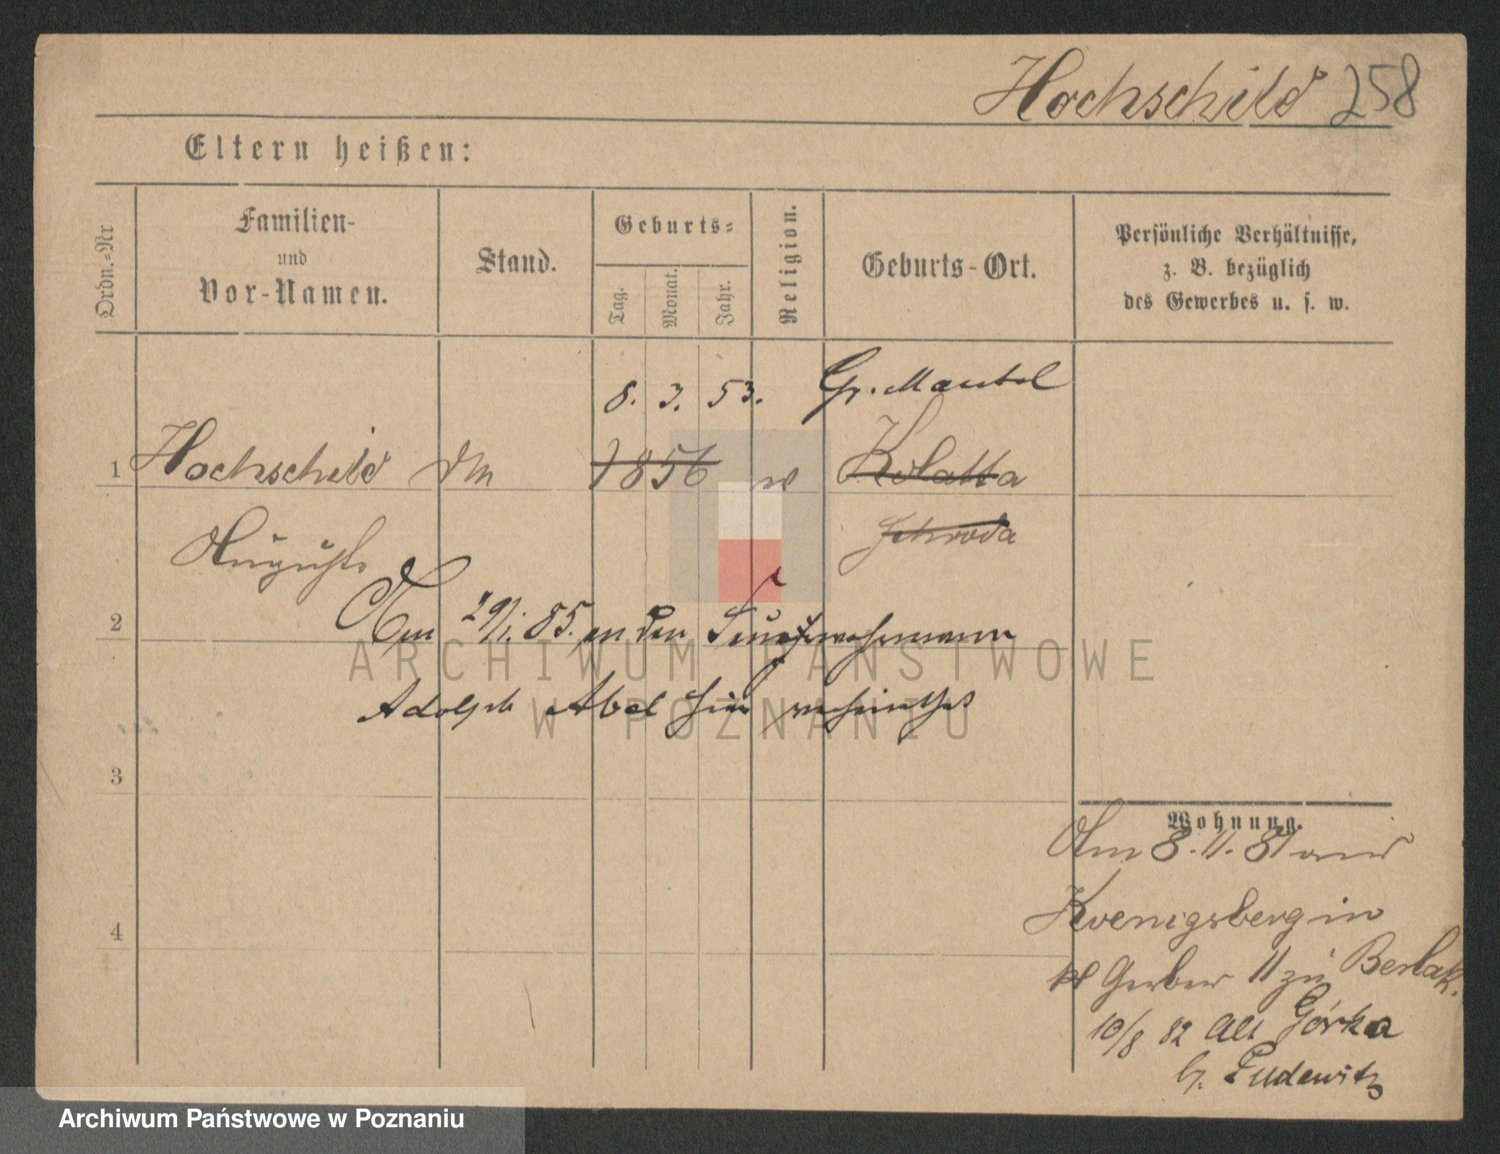 Hochschild 258
Eltern heißen:
Ordn.=Nr
Familien-
und
Vor-Namen.
Stand.
Geburts=
Tag.
Monat.
Jahr.
Religion.
Geburts-Ort.
Persönliche Verhältnisse,
z. B. bezüglich
des Gewerbes u. s. w.
8. 3. 53. Gr. Mantel
1 Hochschild 1856 Kolatta
Auguste Schroda
Am 29/1. 85. an den
2
Adolph Abel hier
3
Wohnung.
Am 8. 11. 81
Koenigsberg in
Gerber 11 zu Berlak.
4
10/8 82 Alt Górka
b. Pudewitz
ARCHIWUM PAŃSTWOWE
W POZNANIU
Archiwum Państwowe w Poznaniu